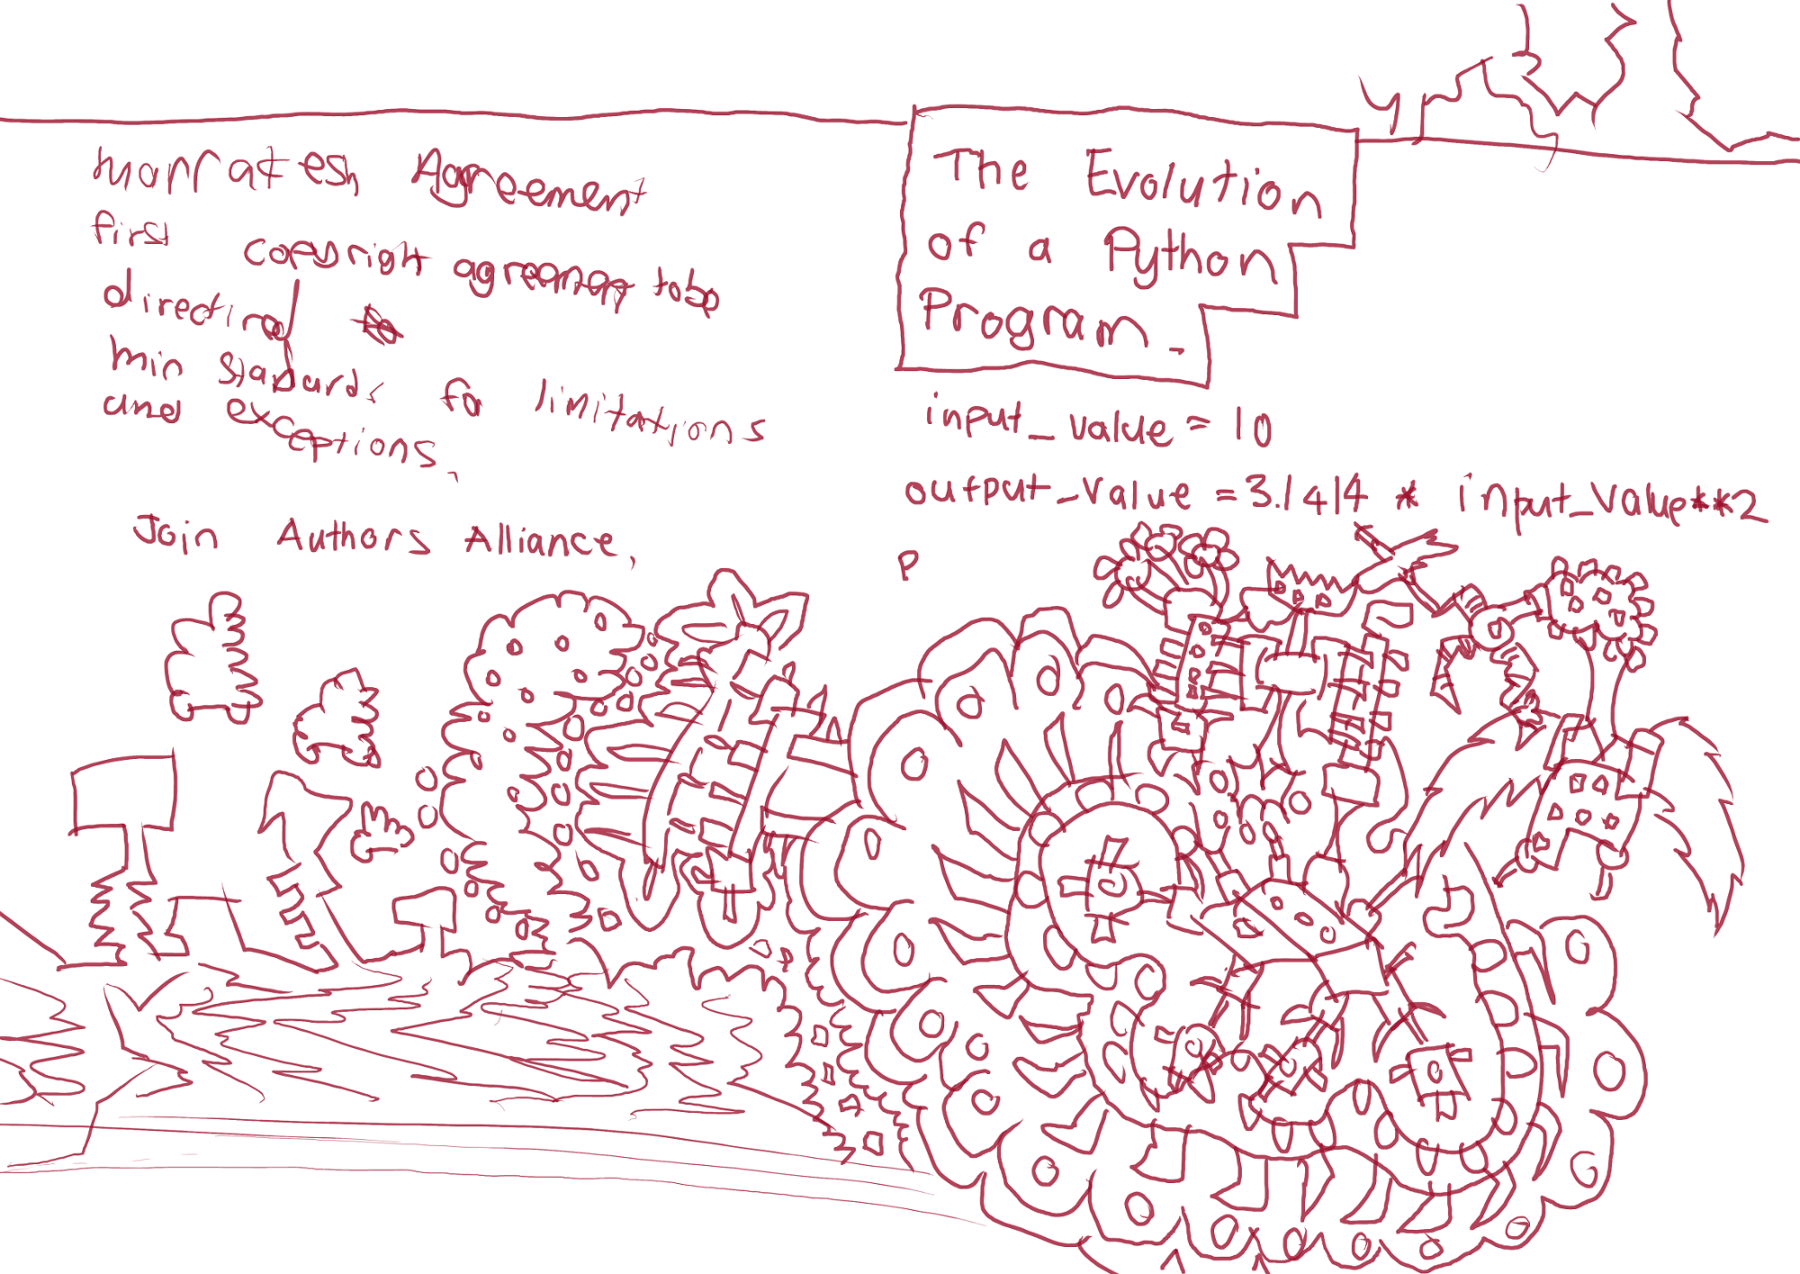 Marrakesh Agreement
first copyright agreement to be
directed
min standards for limitations
and exceptions.
Join Authors Alliance,
The Evolution
of a Python
Program.
input_value = 10
output_value = 3.1414 * input_value**2
P